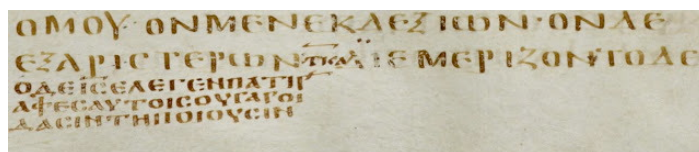 ΟΜΟΥ·ΟΝΜΕΝΕΚΔΕΞΙΩΝ·ΟΝΔΕ
ΕΞΑΡΙϹΤΕΡΩΝ ΔΙΕΜΕΡΙΖΟΝΤΟΔΕ
ΟΔΕΙϹΕΛΕΓΕΝΠΑΤΙΡ
ΑΦΕϹΑΥΤΟΙϹΟΥΓΑΡΟΙ
ΔΑϹΙΝΤΗΠΟΙΟΥϹΙΝ